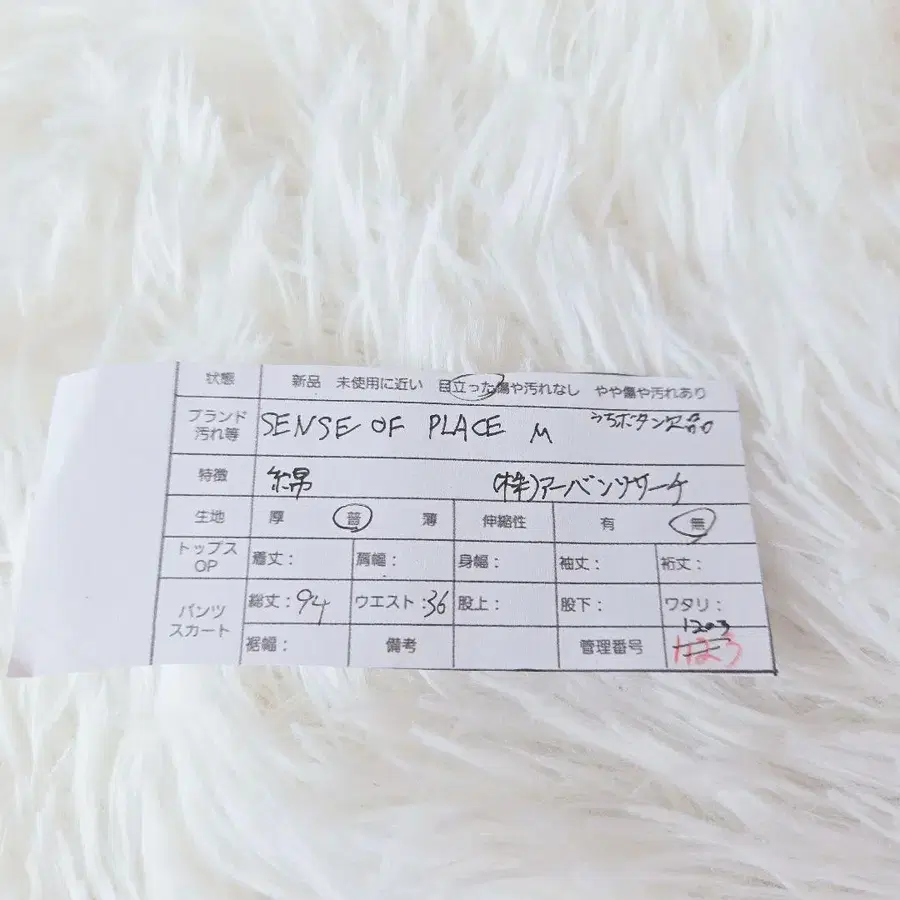 状態 新品 未使用に近い 目立った傷や汚れなし やや傷や汚れあり
ブランド 汚れ等 SENSE OF PLACE M うちボタン欠品
特徴 綿 (株)アーバンリサーチ
生地 厚 普 薄 伸縮性 有 無
トップス OP 着丈: 肩幅: 身幅: 袖丈: 裄丈:
パンツ スカート 総丈:94 ウエスト:36 股上: 股下: ワタリ:
1203
裾幅: 備考 管理番号 1123